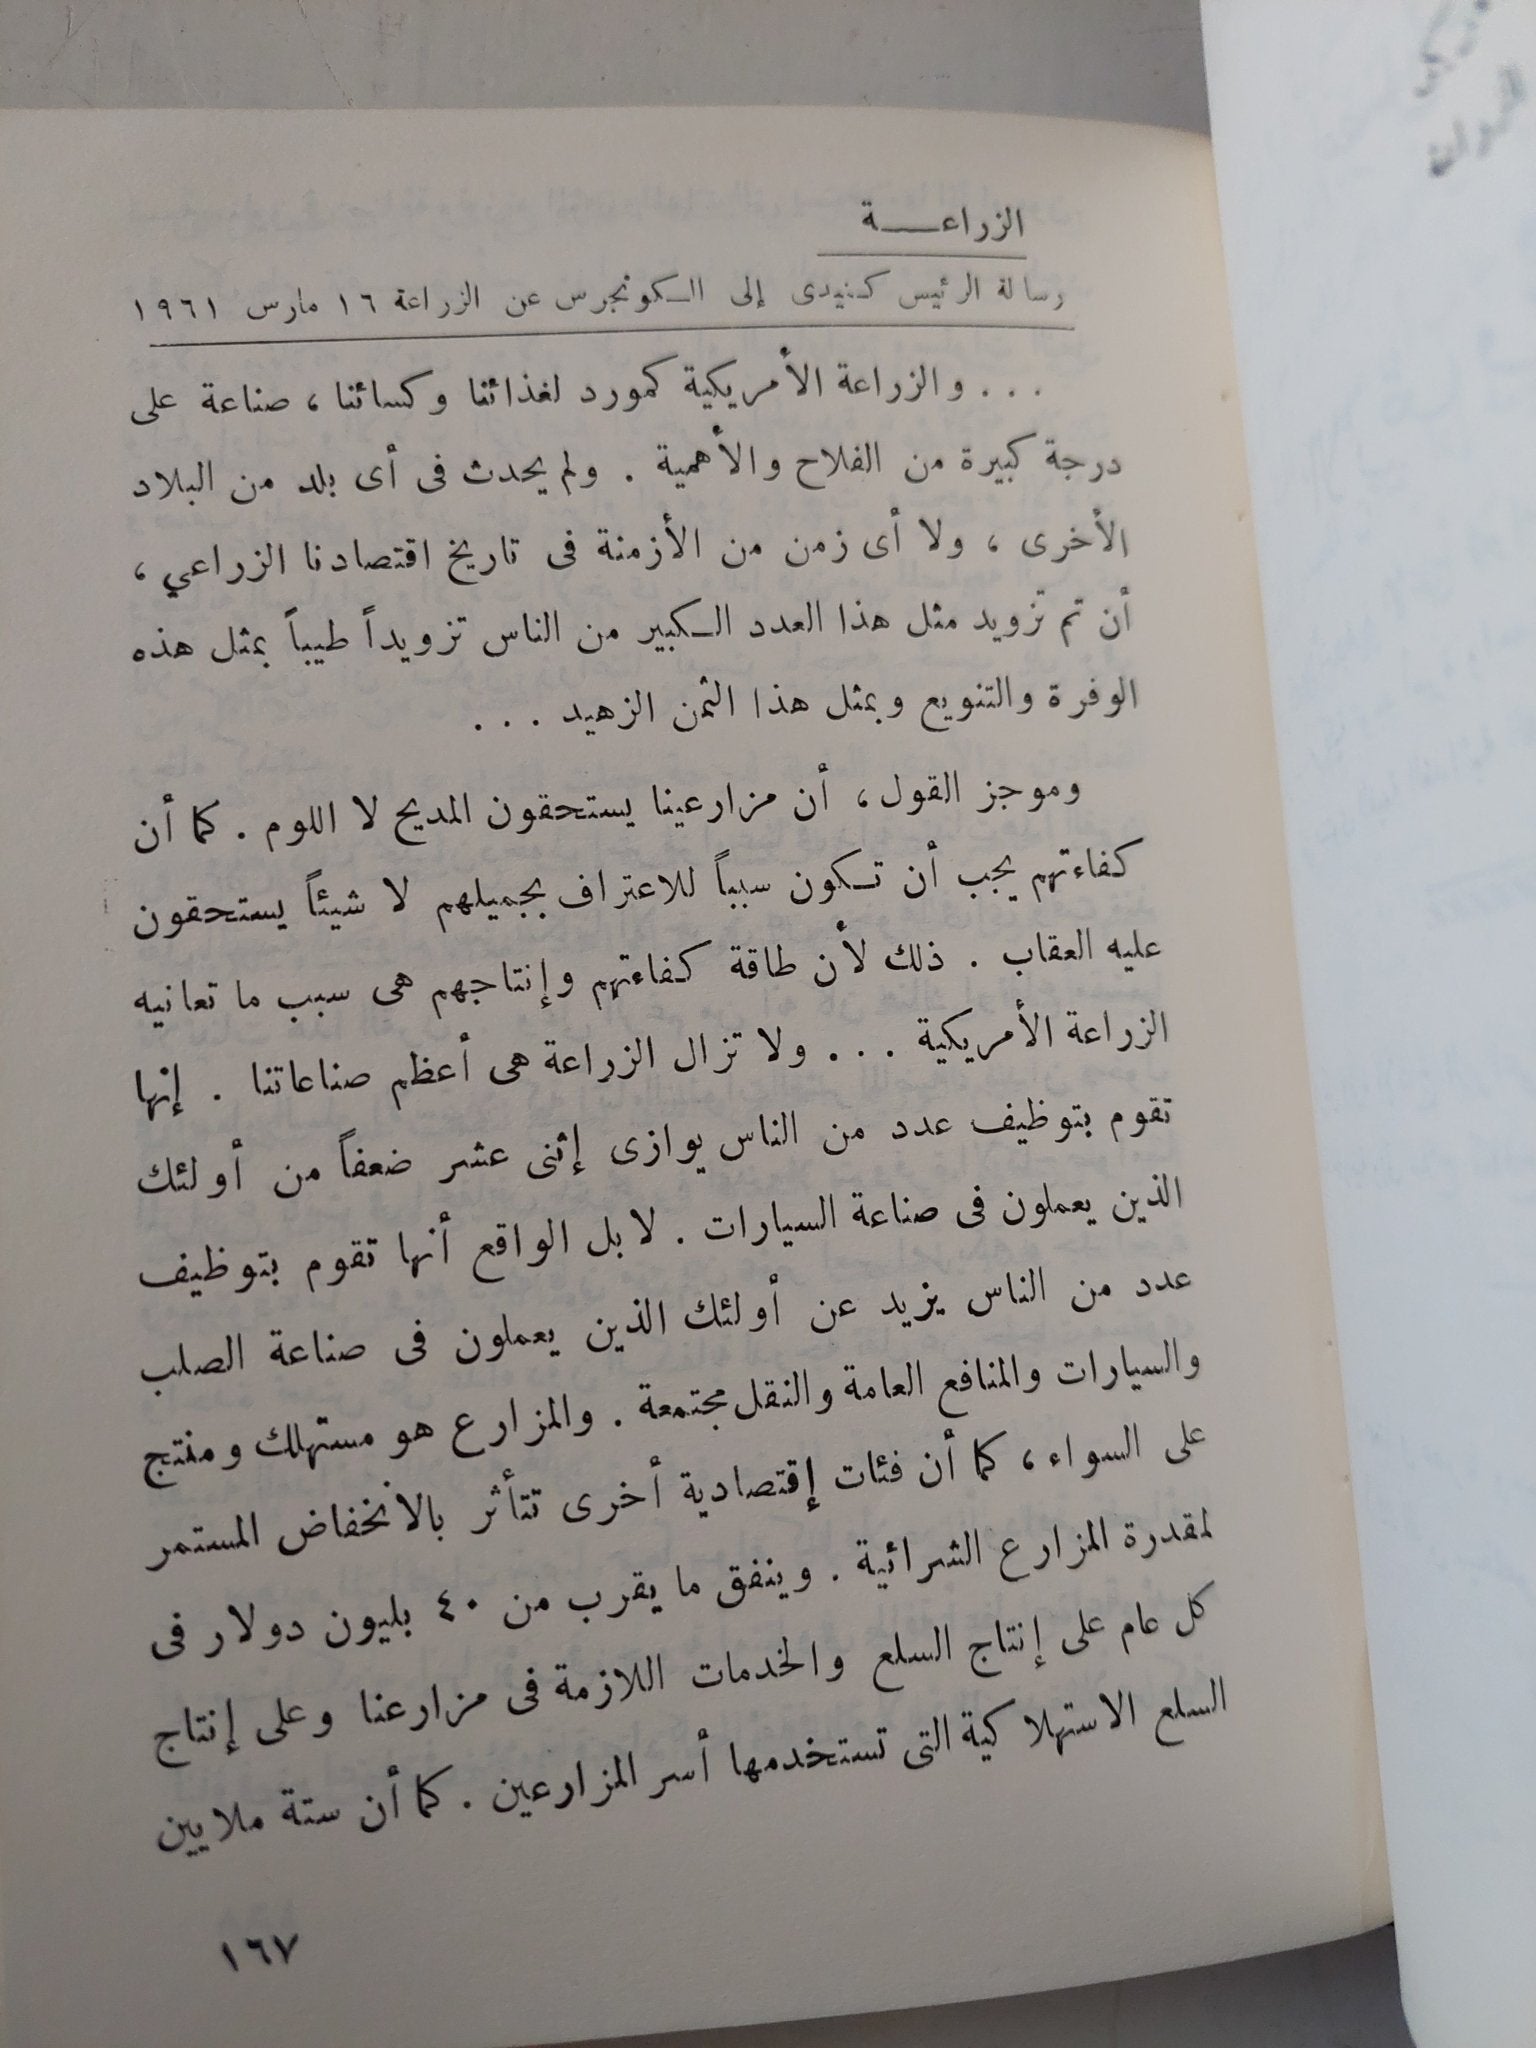 الزراعــــة
رسالة الرئيس كنيدى إلى الكونجرس عن الزراعة ١٦ مارس ١٩٦١
... والزراعة الأمريكية كمورد لغذائنا وكسائنا ، صناعة على
درجة كبيرة من الفلاح والأهمية . ولم يحدث فى أى بلد من البلاد
الأخرى ، ولا أى زمن من الأزمنة فى تاريخ اقتصادنا الزراعي ،
أن تم تزويد مثل هذا العدد الكبير من الناس تزويداً طيباً بمثل هذه
الوفرة والتنويع وبمثل هذا الثمن الزهيد ...
وموجز القول ، أن مزارعينا يستحقون المديح لا اللوم . كما أن
كفاءتهم يجب أن تكون سبباً للاعتراف بجميلهم لا شيئاً يستحقون
عليه العقاب . ذلك لأن طاقة كفاءتهم وإنتاجهم هى سبب ما تعانيه
الزراعة الأمريكية ... ولا تزال الزراعة هى أعظم صناعاتنا . إنها
تقوم بتوظيف عدد من الناس يوازى إثنى عشر ضعفاً من أولئك
الذين يعملون فى صناعة السيارات . لا بل الواقع أنها تقوم بتوظيف
عدد من الناس يزيد عن أولئك الذين يعملون فى صناعة الصلب
والسيارات والمنافع العامة والنقل مجتمعة . والمزارع هو مستهلك ومنتج
على السواء ، كما أن فئات إقتصادية أخرى تتأثر بالانخفاض المستمر
لمقدرة المزارع الشرائية . وينفق ما يقرب من ٤٠ بليون دولار فى
كل عام على إنتاج السلع والخدمات اللازمة فى مزارعنا وعلى إنتاج
السلع الاستهلاكية التى تستخدمها أسر المزارعين . كما أن ستة ملايين
١٦٧